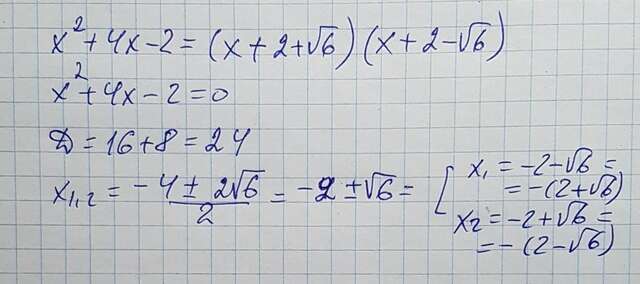 x² + 4x - 2 = (x + 2 + √6)(x + 2 - √6)
x² + 4x - 2 = 0
D = 16 + 8 = 24
x₁,₂ = (-4 ± 2√6)/2 = -2 ± √6 = [
x₁ = -2 - √6 =
= -(2 + √6)
x₂ = -2 + √6 =
= -(2 - √6)